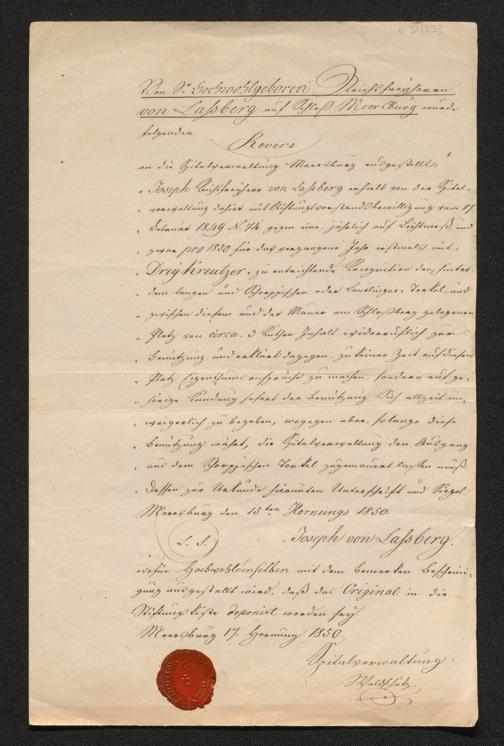 Von Sr. Hochwohlgeboren Reichsfreyherrn
von Laßberg auf Schloß Meersburg wurde
folgender
Revers
an die Spitalverwaltung Meersburg ausgestellt:
„Joseph Reichsfreyherr von Laßberg erhielt von der Spital-
„verwaltung dahier mit Stiftungsvorstandsbewilligung vom 17.
„Februar 1849 N. 74. gegen eine, jährlich auf Lichtmeß und
„zwar pro 1850 für das vergangene Jahr erstmals mit,
„Drey Kreutzer, zu entrichtende Recognition den, hinter
„dem langen und Schoppischen oder Torkel und
„zwischen diesem und der Mauer am Schloßberg gelegenen
„Platz von circa 3 Ruthen Inhalt widerruflich zur
„Benützung und erklärt dagegen, zu keiner Zeit auf diesen
„Platz Eigenthums ansprüche zu machen, sondern auf ge-
„hörige Kündung sofort der Benützung sich allzeit un-
„weigerlich zu begeben, wogegen aber, solange diese
„Benützung währt, die Spitalverwaltung den Ausgang
„aus dem Schoppischen Torkel zugemauert lassen muß.
„Dessen zur Urkunde Unterschrift und Siegel
Meersburg den 15ten Hornungs 1850.
L. S. Joseph von Laßberg.
wofür Hochwohldenselben mit dem Bemerken Bescheini-
gung ausgestellt wird, daß das Original in die
Stiftungskiste deponirt worden sey.
Meersburg 17. Hornung 1850.
Spitalverwaltung.